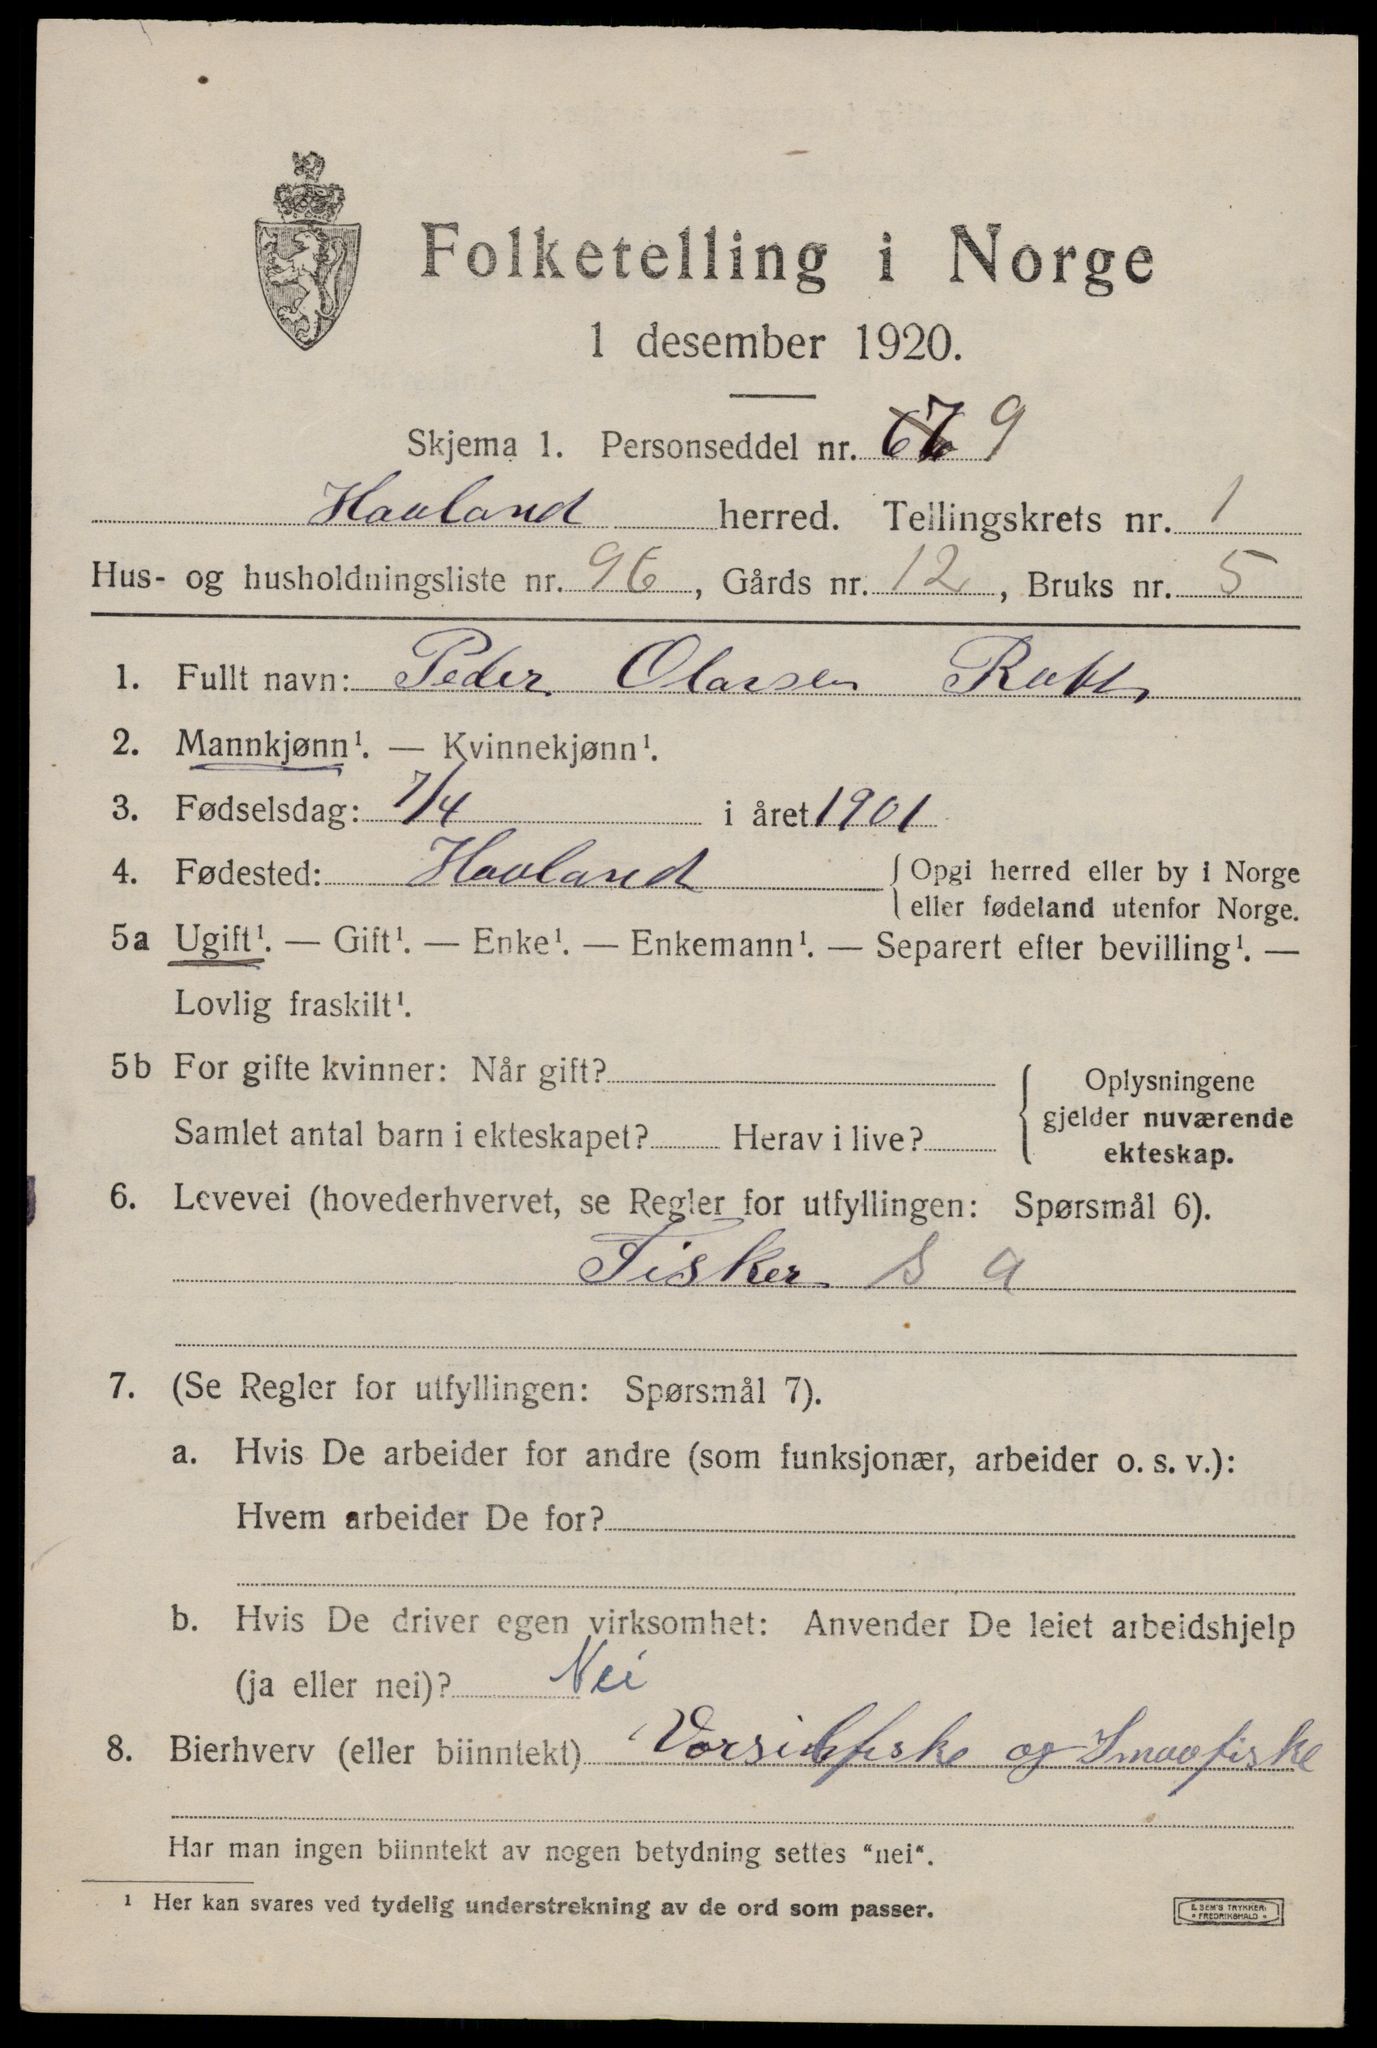 Folketelling i Norge
1 desember 1920.
Skjema 1. Personseddel nr. 679
Havland herred. Tellingskrets nr. 1
Hus- og husholdningsliste nr. 96, Gårds nr. 12, Bruks nr. 5
1. Fullt navn: Peder Olavsen
2. Mannkjønn¹. — Kvinnekjønn¹.
3. Fødselsdag: 7/4 i året 1901
4. Fødested: Havland { Opgi herred eller by i Norge
eller fødeland utenfor Norge.
5a Ugift¹. — Gift¹. — Enke¹. — Enkemann¹. — Separert efter bevilling¹. —
Lovlig fraskilt¹.
5b For gifte kvinner: Når gift?
Samlet antal barn i ekteskapet? Herav i live?
{ Oplysningene
gjelder nuværende
ekteskap.
6. Levevei (hovederhvervet, se Regler for utfyllingen: Spørsmål 6).
Fisker S a
7. (Se Regler for utfyllingen: Spørsmål 7).
a. Hvis De arbeider for andre (som funksjonær, arbeider o. s. v.):
Hvem arbeider De for?
b. Hvis De driver egen virksomhet: Anvender De leiet arbeidshjelp
(ja eller nei)? Nei
8. Bierhverv (eller biinntekt) Vorsildfiske og Smaafiske
Har man ingen biinntekt av nogen betydning settes "nei".
¹ Her kan svares ved tydelig understrekning av de ord som passer.
E. SEM'S TRYKKERI
FREDRIKSHALD